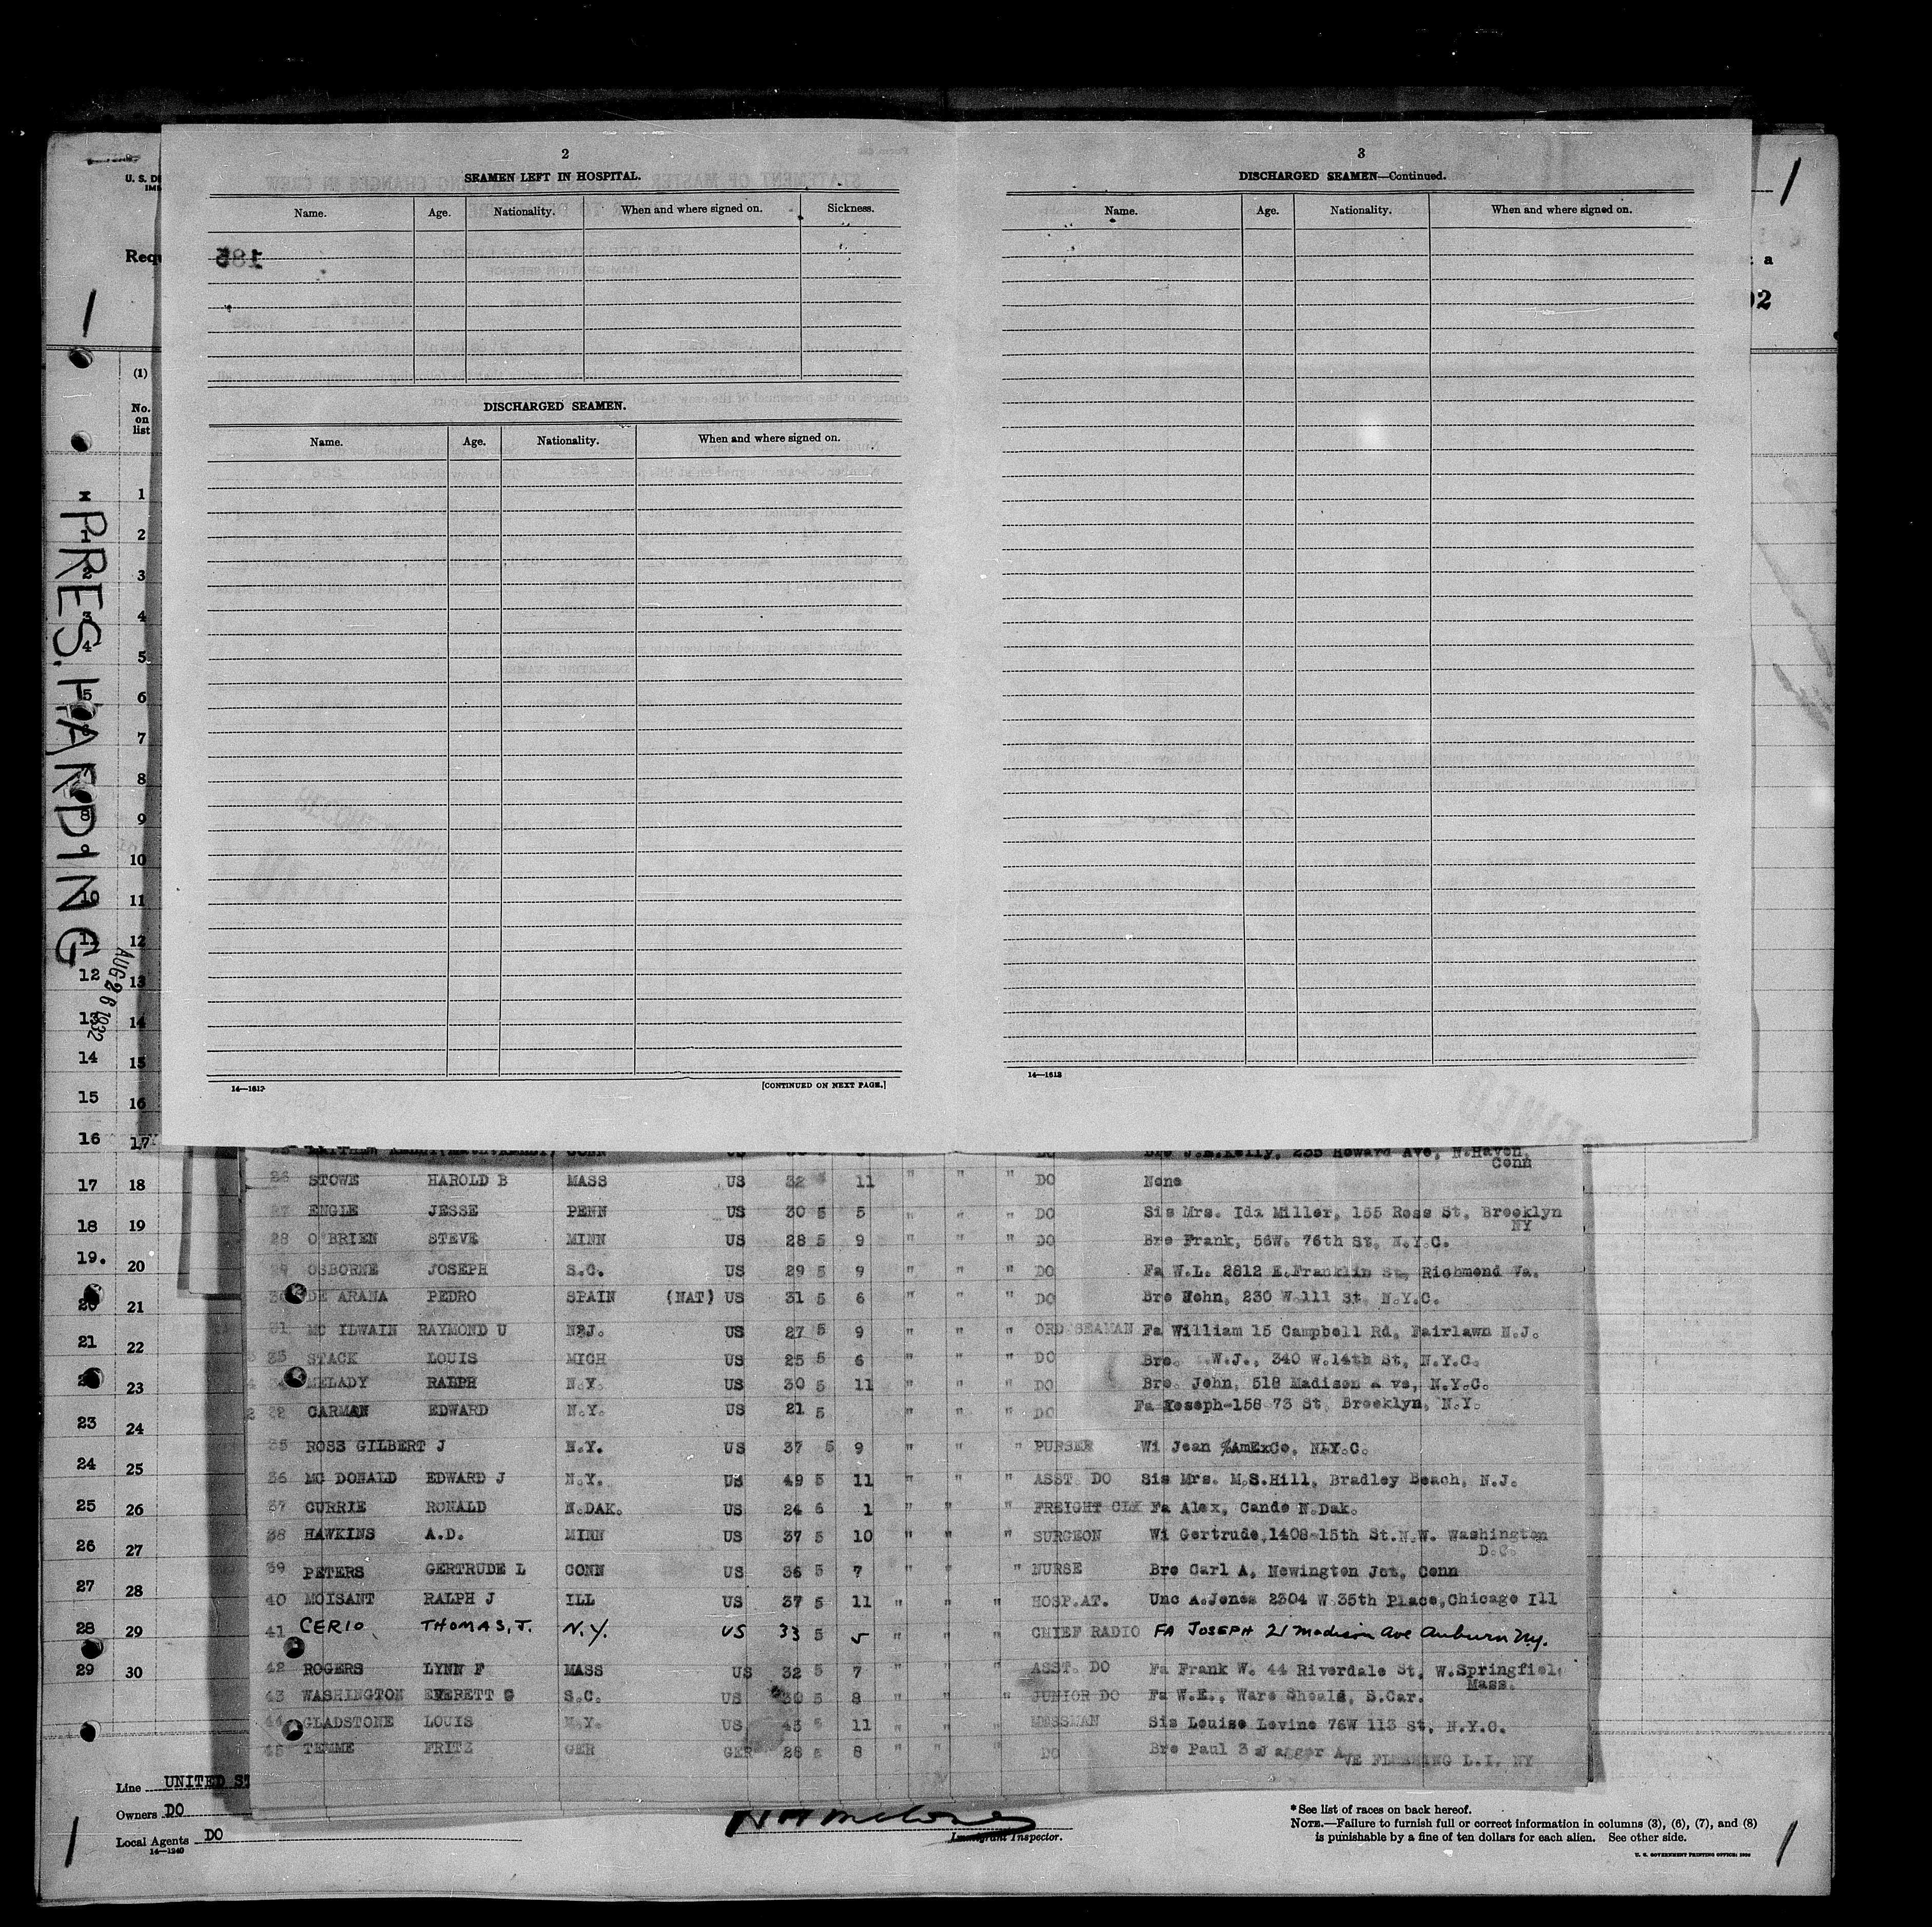 2
SEAMEN LEFT IN HOSPITAL.
Name. Age. Nationality. When and where signed on. Sickness.
185
DISCHARGED SEAMEN.
Name. Age. Nationality. When and where signed on.
14—1613 [CONTINUED ON NEXT PAGE.]
3
DISCHARGED SEAMEN—Continued.
Name. Age. Nationality. When and where signed on.
14—1613
U. S. DE
IMM
Requ
a
02
(1)
No. on list
PRES. HARDING
AUG 26 1932
1
2
3
4
5
6
7
8
9
10
11
12
13
14
15
16
17
18
19
20
21
22
23
24
25
26
27
28
29
30
CONN US DO Bro J.E.Kelly, 235 Howard Ave, N.Haven, Conn
26 STOWE HAROLD B MASS US 32 5 11 " " " DO None
27 ENGLE JESSE PENN US 30 5 5 " " " DO Sis Mrs. Ida Miller, 155 Ross St, Brooklyn NY
28 O'BRIEN STEVE MINN US 28 5 9 " " " DO Bro Frank, 56W. 76th St, N.Y.C.
29 OSBORNE JOSEPH S.C. US 29 5 9 " " " DO Fa W.L. 2812 E.Franklin St, Richmond Va.
30 DE ARANA PEDRO SPAIN (NAT) US 31 5 6 " " " DO Bro John, 230 W 111 St. N.Y.C.
31 MC ILWAIN RAYMOND U N.J. US 27 5 9 " " " ORD SEAMAN Fa William 15 Campbell Rd, Fairlawn N.J.
33 STACK LOUIS MICH US 25 5 6 " " " DO Bro. W.J., 340 W.14th St, N.Y.C.
34 MELADY RALPH N.Y. US 30 5 11 " " " DO Bro. John, 518 Madison Ave, N.Y.C.
32 CARMAN EDWARD N.Y. US 21 5 " " " DO Fa Joseph-158 73 St, Brooklyn, N.Y.
35 ROSS GILBERT J N.Y. US 37 5 9 " " " PURSER Wi Jean %AmExCo, N.Y.C.
36 MC DONALD EDWARD J N.Y. US 49 5 11 " " " ASST. DO Sis Mrs. M.S.Hill, Bradley Beach, N.J.
37 CURRIE RONALD N.DAK. US 24 6 1 " " " FREIGHT CLK Fa Alex, Cando N.Dak.
38 HAWKINS A.D. MINN US 37 5 10 " " " SURGEON Wi Gertrude,1408-15th St.N.W. Washington D.C.
39 PETERS GERTRUDE L CONN US 36 5 7 " " " NURSE Bro Carl A, Newington Jct, Conn
40 MOISANT RALPH J ILL US 37 5 11 " " " HOSP.AT. Unc A.Jones 2304 W 35th Place,Chicago Ill
41 CERIO THOMAS, J. N.Y. US 33 5 5 " " " CHIEF RADIO FA JOSEPH 21 Madison Ave Auburn N.Y.
42 ROGERS LYNN F MASS US 32 5 7 " " " ASST. DO Fa Frank W. 44 Riverdale St, W.Springfiel Mass.
43 WASHINGTON EVERETT G S.C. US 30 5 8 " " " JUNIOR DO Fa W.E., Ware Shoals, S.Car.
44 GLADSTONE LOUIS N.Y. US 43 5 11 " " " MESSMAN Sis Louise Levine 76W 113 St, N.Y.C.
45 TEMME FRITZ GER GER 28 5 8 " " " DO Bro Paul 3 Jagger AVE FLUSHING L.I. NY
Line UNITED ST
Owners DO
Local Agents DO
14—1240
Immigrant Inspector.
* See list of races on back hereof.
NOTE.—Failure to furnish full or correct information in columns (3), (6), (7), and (8)
is punishable by a fine of ten dollars for each alien. See other side.
U. S. GOVERNMENT PRINTING OFFICE: 1930